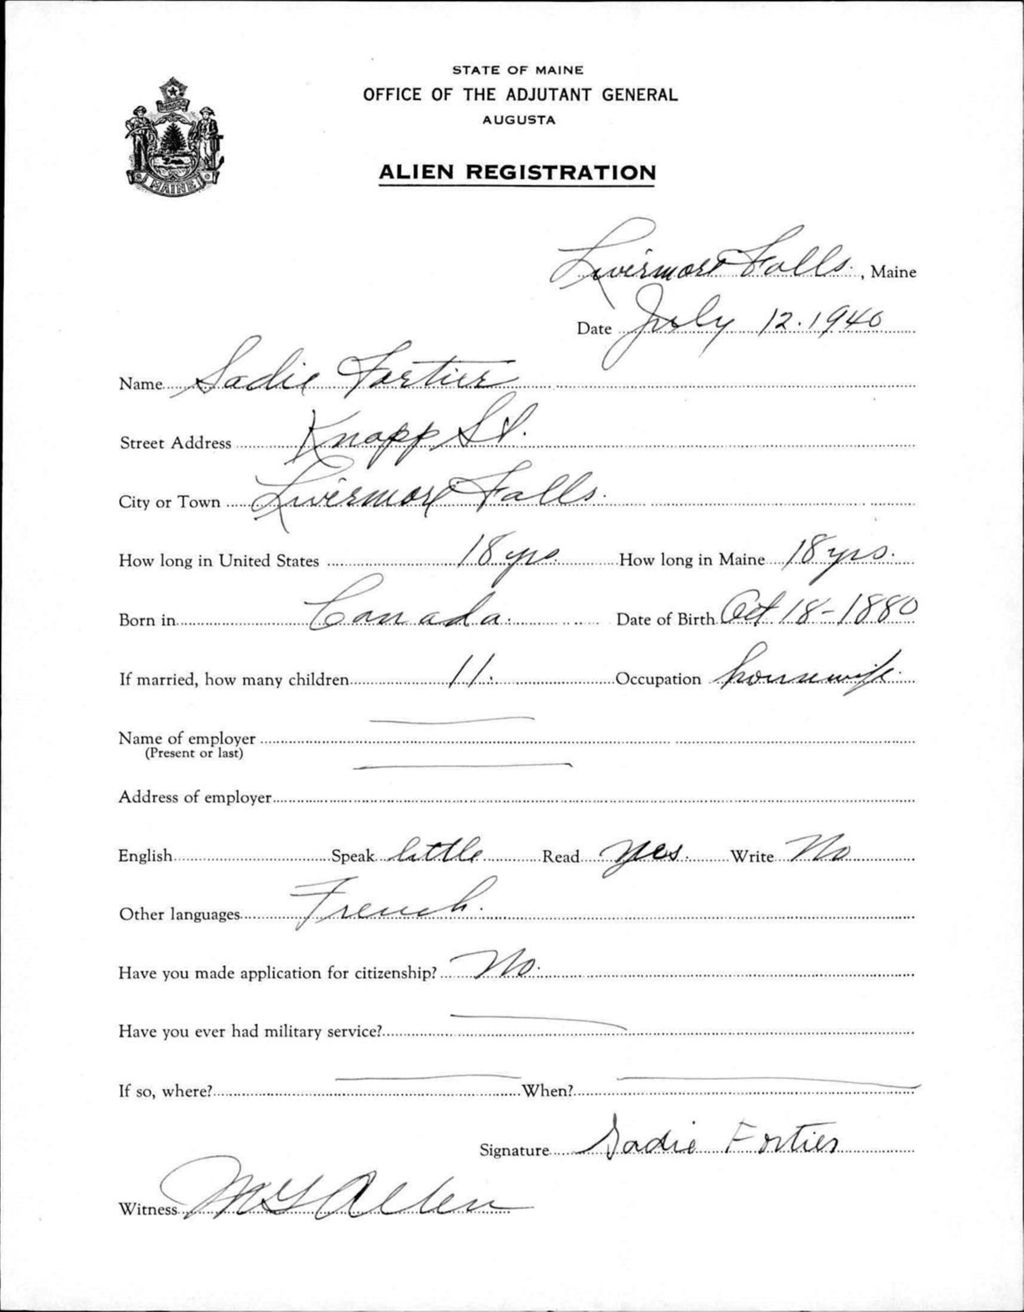 STATE OF MAINE
OFFICE OF THE ADJUTANT GENERAL
AUGUSTA
ALIEN REGISTRATION
MAINE
Livermore Falls., Maine
Date July 12.1940
Name Sadie Fortier
Street Address Knapp St.
City or Town Livermore Falls.
How long in United States 18 yrs. How long in Maine 18 yrs.
Born in Canada. Date of Birth Oct 18-1880
If married, how many children 11. Occupation housewife.
Name of employer
(Present or last)
Address of employer
English Speak little Read yes. Write No
Other languages French.
Have you made application for citizenship? No.
Have you ever had military service?
If so, where? When?
Signature Sadie Fortier
Witness Allen